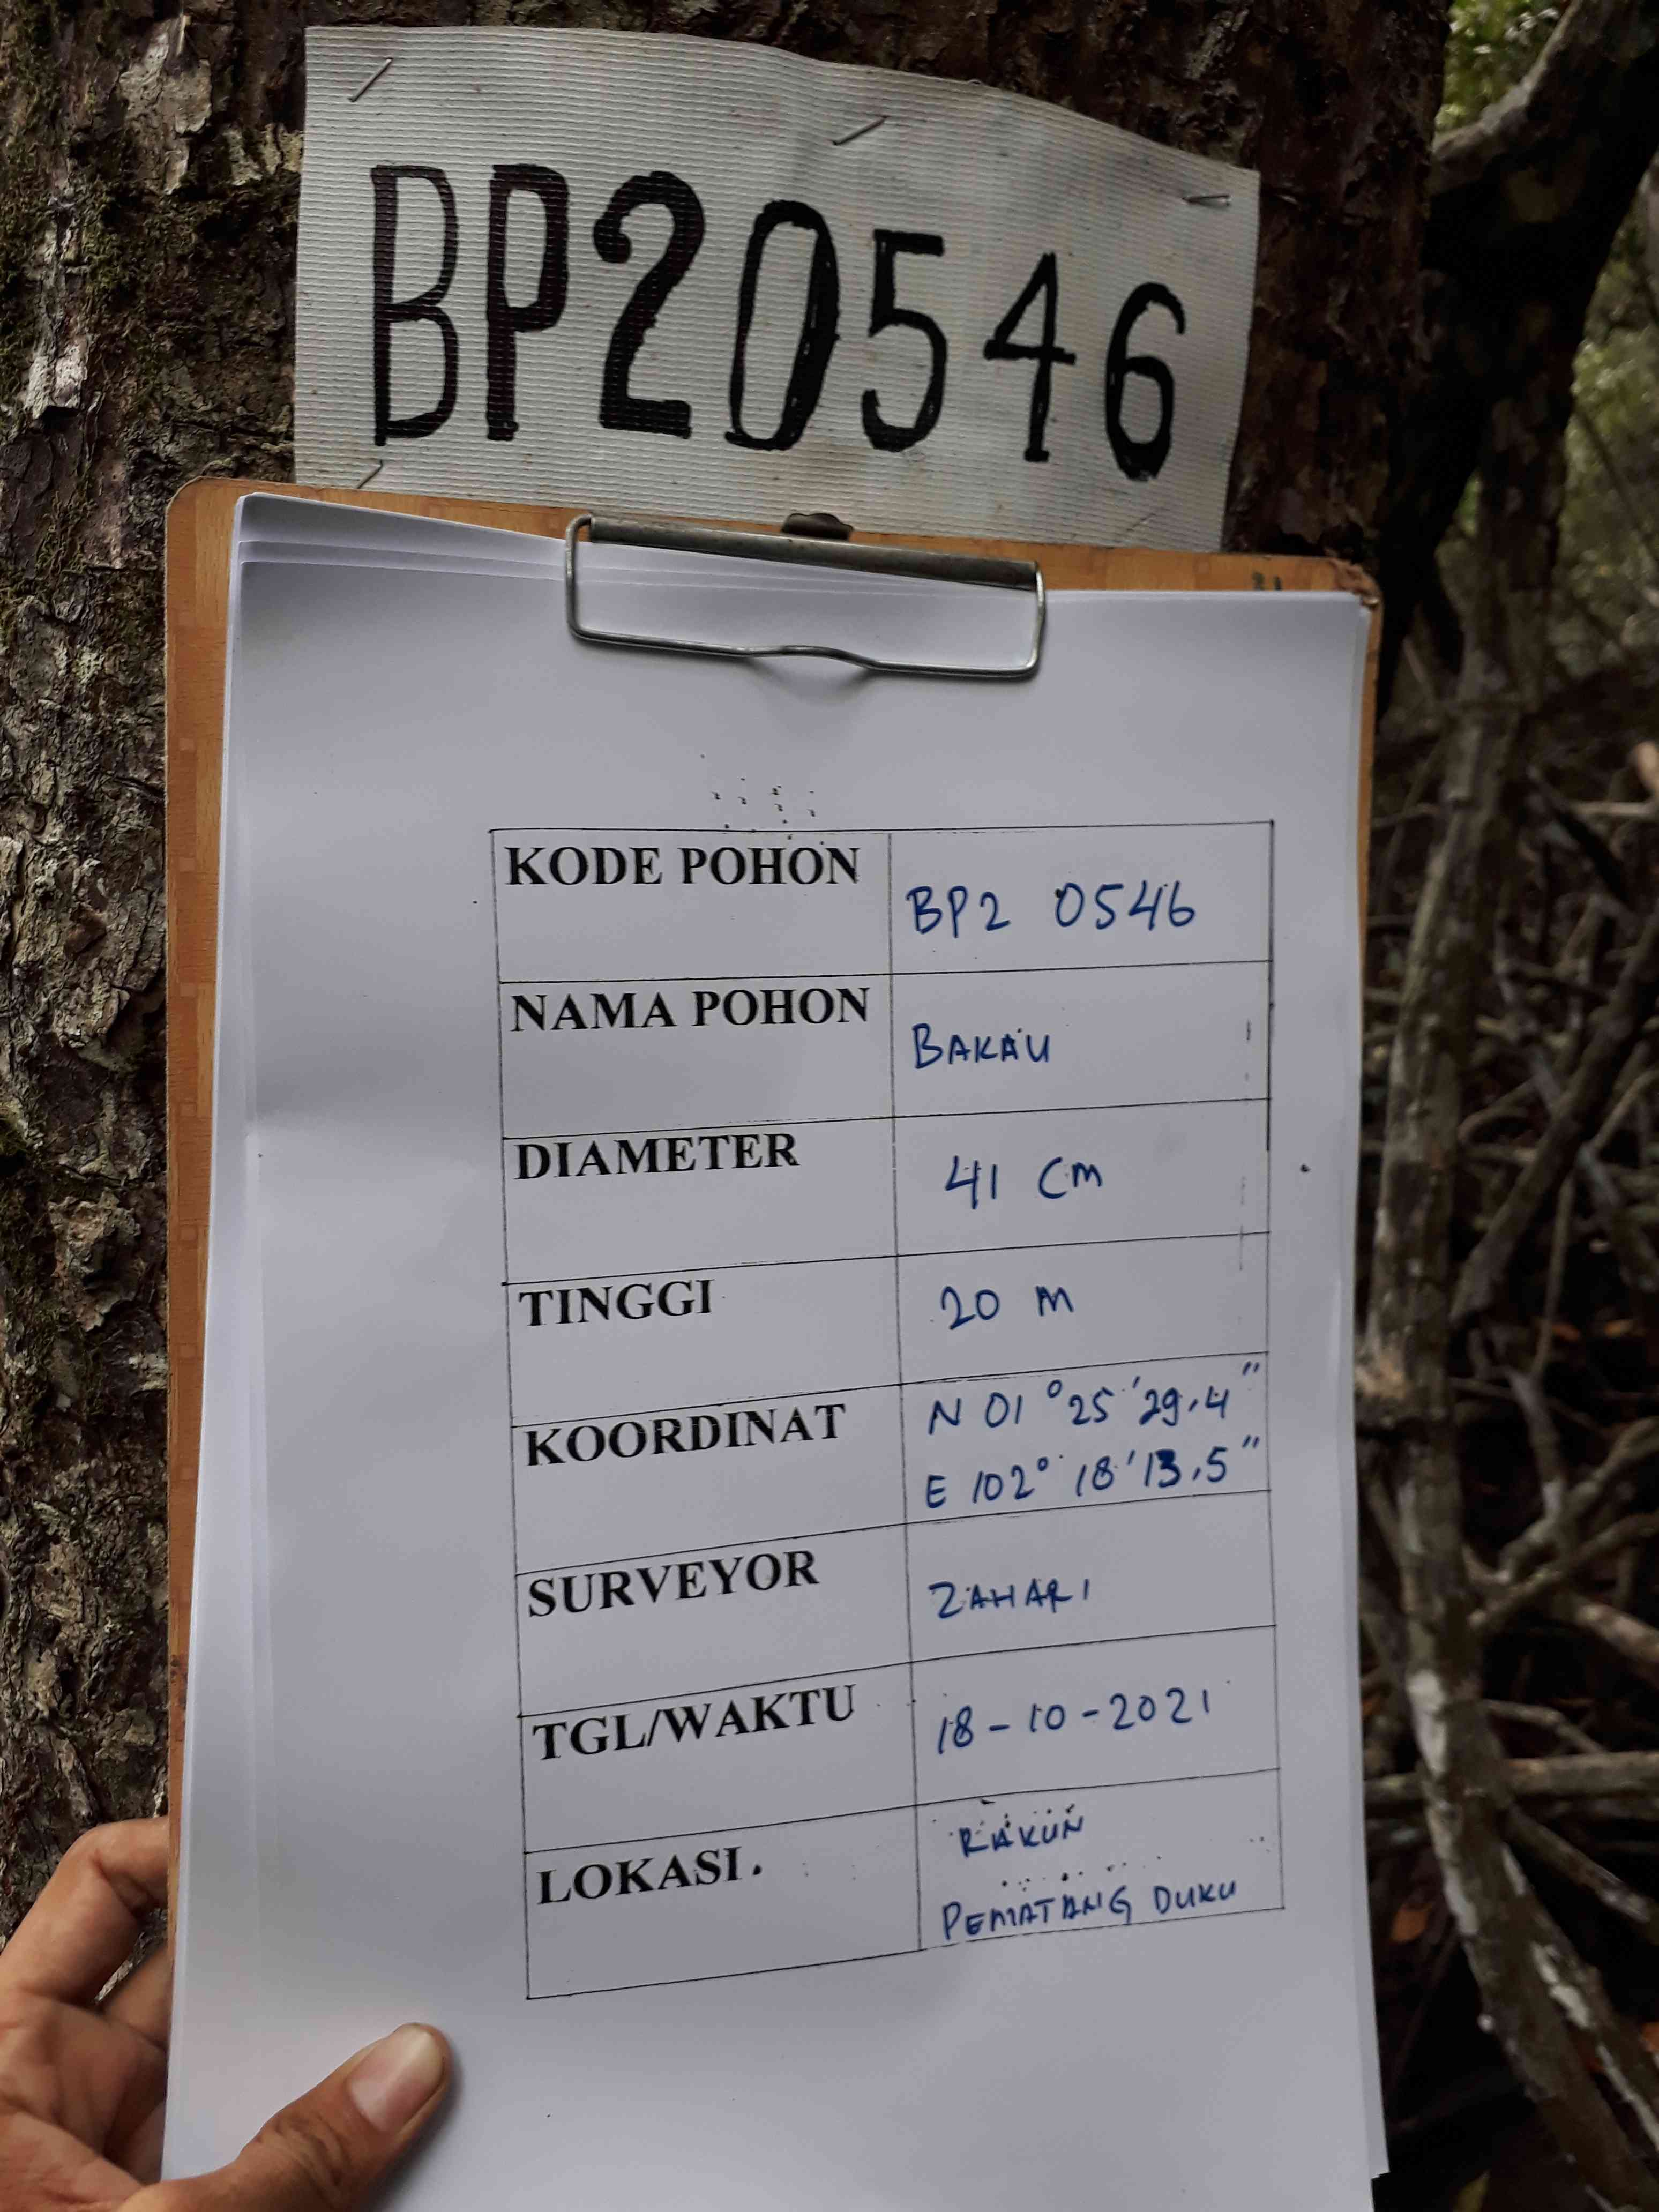 BP20546
KODE POHON BP2 0546
NAMA POHON BAKAU
DIAMETER 41 cm
TINGGI 20 M
KOORDINAT N 01°25'29,4"
E 102°18'13,5"
SURVEYOR ZAHARI
TGL/WAKTU 18-10-2021
LOKASI. RAKUN
PEMATANG DUKU